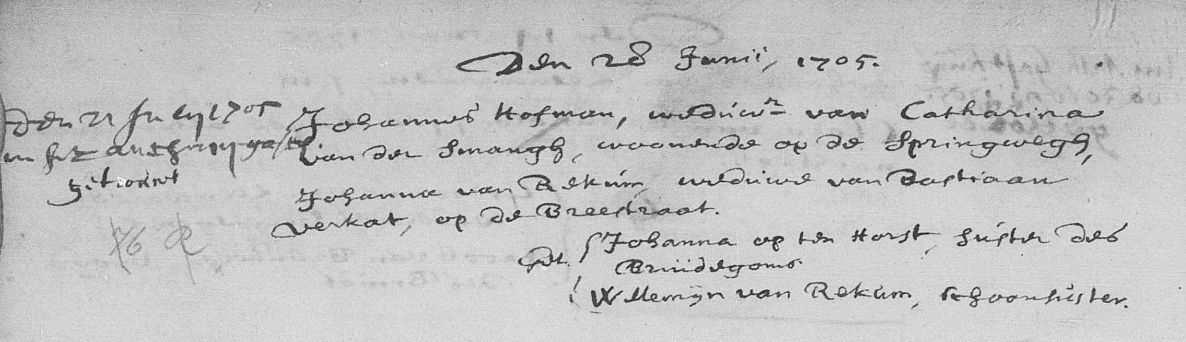 Den 28 Junii, 1705.
Den 21 July 1705
in het anthonij gasth
getrouwt
Johannes Hofman, weduwr van Catharina
van der Smaugh, woonende op de Springwegh,
Johanna van Rekum, weduwe van Bastiaan
Verkat, op de Breestraat.
get. Johanna op ten Horst, suster des
Bruidegoms.
Willemijn van Rekum, schoonsuster.